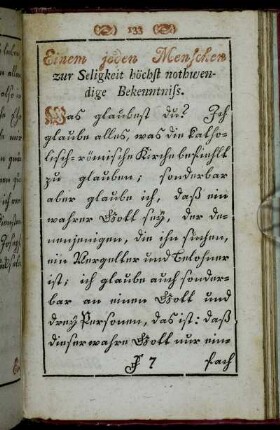 133
Einem jeden Menschen
zur Seligkeit höchst nothwen-
dige Bekenntniſs.
Was glaubest du? Ich
glaube alles, was die Catho-
lisch-römische Kirche befiehlt
zu glauben; sonderbar
aber glaube ich, daß ein
wahrer Gott sey, der de-
nenjenigen, die ihn suchen,
ein Vergelter und Belohner
ist; ich glaube auch sonder-
bar an einen Gott und
drey Personen, das ist: daß
dieser wahre Gott nur ein-
F 7 fach